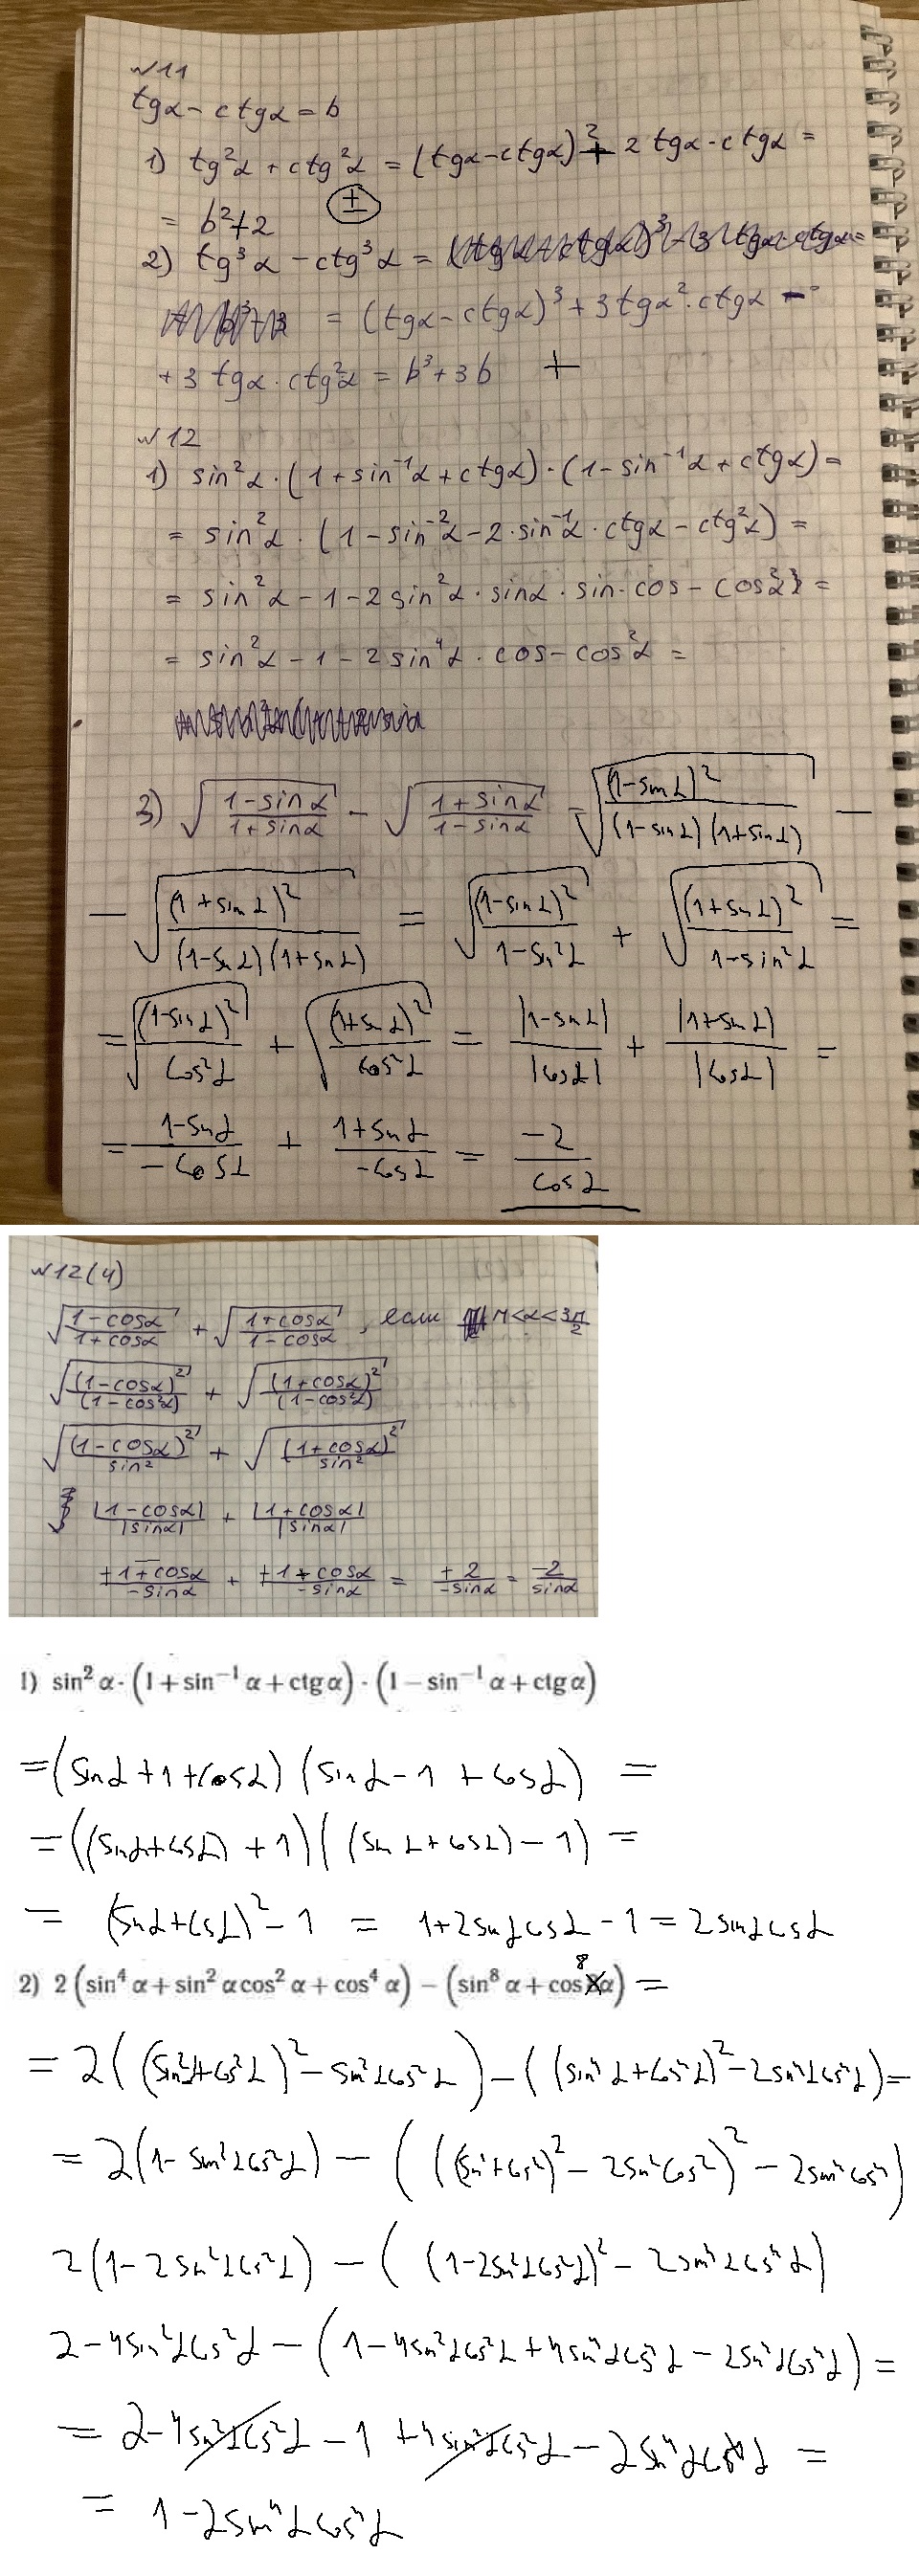 №11
tgα - ctgα = b
1) tg²α + ctg²α = (tgα - ctgα)² + 2 tgα · ctgα =
= b² + 2 ±
2) tg³α - ctg³α =
= (tgα - ctgα)³ + 3 tgα² · ctgα -
+ 3 tgα · ctg²α = b³ + 3b +
№12
1) sin²α · (1 + sin⁻¹α + ctgα) · (1 - sin⁻¹α + ctgα) =
= sin²α · (1 - sin⁻²α - 2 · sin⁻¹α · ctgα - ctg²α) =
= sin²α - 1 - 2 sin²α · sinα · sin · cos - cos²α =
= sin²α - 1 - 2 sin⁴α · cos - cos²α =
3) √((1-sinα)/(1+sinα)) - √((1+sinα)/(1-sinα)) = √((1-sinα)²/((1-sinα)(1+sinα))) -
- √((1+sinα)²/((1-sinα)(1+sinα))) = √((1-sinα)²/(1-sin²α)) + √((1+sinα)²/(1-sin²α)) =
= √((1-sinα)²/cos²α) + √((1+sinα)²/cos²α) = |1-sinα|/|cosα| + |1+sinα|/|cosα| =
= (1-sinα)/(-cosα) + (1+sinα)/(-cosα) = -2/cosα
№12(4)
√((1-cosα)/(1+cosα)) + √((1+cosα)/(1-cosα)), если π<α<3π/2
√((1-cosα)²/(1-cos²α)) + √((1+cosα)²/(1-cos²α))
√((1-cosα)²/sin²) + √((1+cosα)²/sin²)
|1-cosα|/|sinα| + |1+cosα|/|sinα|
(+1+cosα)/(-sinα) + (+1+cosα)/(-sinα) = +2/(-sinα) = -2/sinα
1) sin² α · (1 + sin⁻¹ α + ctg α) · (1 - sin⁻¹ α + ctg α)
= (sinα + 1 + cosα)(sinα - 1 + cosα) =
= ((sinα+cosα) + 1)((sinα+cosα) - 1) =
= (sinα+cosα)² - 1 = 1 + 2sinαcosα - 1 = 2sinαcosα
2) 2 (sin⁴ α + sin² α cos² α + cos⁴ α) - (sin⁸ α + cos⁸ α) =
= 2((sin²α+cos²α)² - sin²αcos²α) - ((sin⁴α+cos⁴α)² - 2sin⁴αcos⁴α) =
= 2(1 - sin²αcos²α) - (((sin²+cos²)² - 2sin²cos²)² - 2sin⁴cos⁴)
2(1 - 2sin²αcos²α) - ((1-2sin²αcos²α)² - 2sin⁴αcos⁴α)
2 - 4sin²αcos²α - (1 - 4sin²αcos²α + 4sin⁴αcos⁴α - 2sin⁴αcos⁴α) =
= 2 - 4sin²αcos²α - 1 + 4sin²αcos²α - 2sin⁴αcos⁴α =
= 1 - 2sin⁴αcos⁴α